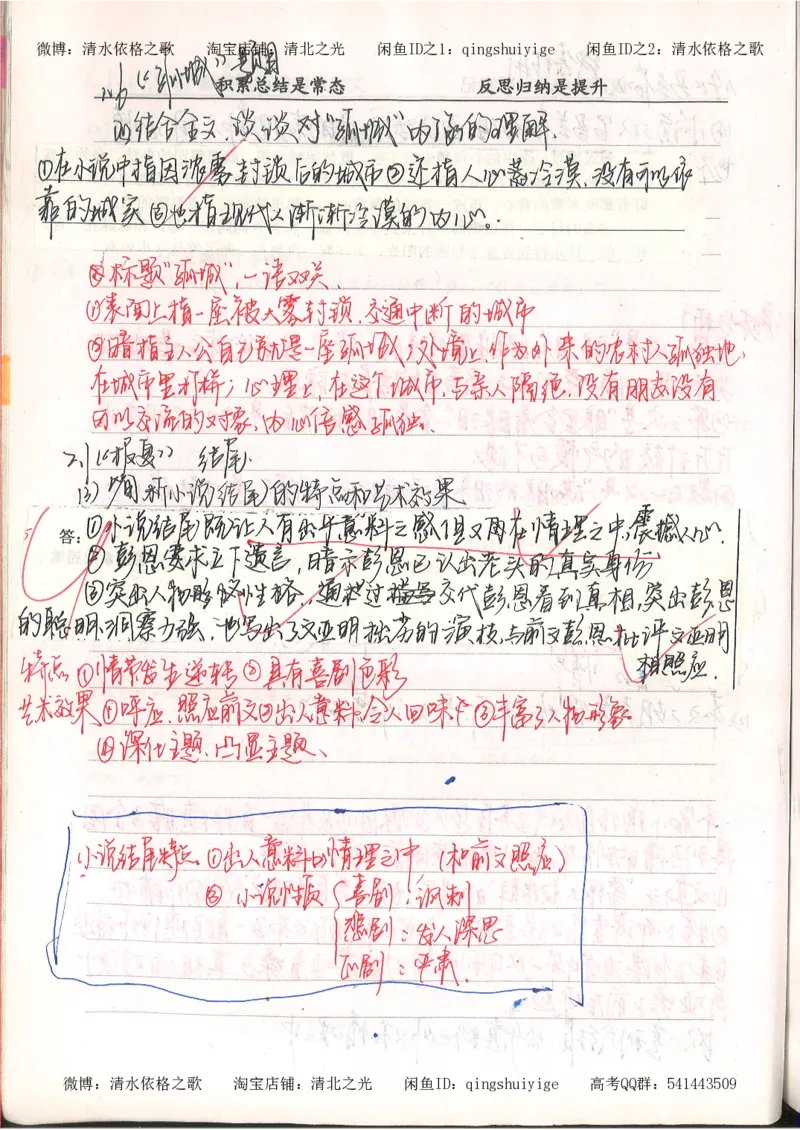 微博：清水依格之歌 淘宝店铺：清北之光 闲鱼ID之1：qingshuiyige 闲鱼ID之2：清水依格之歌
《孤城》 题目
积累总结是常态 反思归纳是提升
结合全文，谈谈对“孤城”内涵的理解.
①在小说中指因浓雾封锁后的城市②还指人心冷漠，没有可以依
靠的城寨③也指现代人渐渐冷漠的内心。
标题“孤城”，一语双关.
①表面上指一座被大雾封锁，交通中断的城市
②暗指主人公自己就是一座孤城；处境上，作为外来的农村人孤独地
在城市里打拼；心理上，在这个城市，与亲人隔绝，没有朋友没有
可以交流的对象，内心倍感孤独.
《报复》 结尾.
(3) 赏析小说结尾的特点和艺术效果
答：①小说结尾既让人有出乎意料之感但又再在情理之中，震撼人心.
②彭恩要求立下遗言，暗示彭恩已认出老头的真实身份
③突出人物形象性格，通过过描写交代彭恩看到真相，突出彭恩
的聪明、洞察力强，也写出了文亚明拙劣的演技，与前文彭恩批评文亚明
相照应.
特点 ①情节发生逆转 ②具有喜剧色彩
艺术效果 ①呼应、照应前文②出人意料，令人回味 ③丰富了人物形象
④深化主题，凸显主题、
小说结尾特点 ①出人意料的情理之中 （和前文照应）
② 小说性质 喜剧：讽刺
悲剧：发人深思
正剧：严肃.
微博：清水依格之歌 淘宝店铺：清北之光 闲鱼ID：qingshuiyige 高考QQ群：541443509